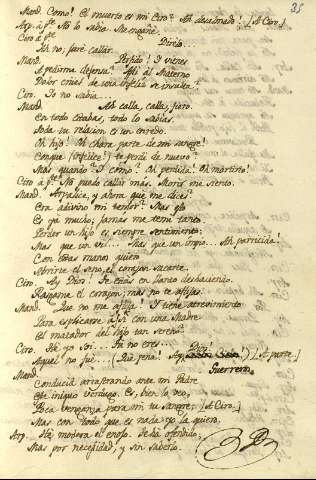 35
Mand. Como! El muerto es mi Ciro? Ah desalmado! [A Ciro.]
Arp. á pte. No lo sabia. Me engañé.
Ciro á pte. Dirélo...
Ah no, favré callar.
Mand. Perfido! I vienes
A pedirme defensa? Assi al Materno
Dolor crúel de una infeliz se insulta?
Ciro. Io no sabia...
Mand. Ah calla, calla, fiero.
En todo estabas, todo lo sabías.
Toda tu relacion es un enredo.
Oh hijo! Oh chara parte de mi sangre!
Conque (infelice!) te perdi de nuevo?
Mas quando? I como? Oh perdida! Oh martirio!
Ciro á pte. No puedo callár más. Moris me siento.
Mand. Arpalice, y ahora que me dices?
Era adivino mi temor? Mas
Es ya mucho, jamás me temi tanto.
Perder un hijo es siempre sentimiento;
Mas que un vil... Mas que un impio... Ah parricida!
Con estas manos quiero
Abrirte el seno, el corazon sacarte.
Ciro. Ay Dios! Te estás en llanto deshaciendo.
Rasgame el corazon; mas no te aflijas.
Mand. Que no me aflija! I tiene atrevimiento
Para explicarse assi con una Madre
El matador del hijo tan sereno?
Ciro. No yo soi... Tu no eres...
Aquel no fué... (Que pena! [A parte.]
Mand. Guerreros,
Conducid arrastrando ante mi Padre
Este iniquo Verdugo. Es, bien lo veo,
Poca venganza para mi tu sangre; [A Ciro.]
Mas con todo que es nada yo la quiero.
Arp. Há, modera el enojo. Te há ofendido,
Mas por necesidad, y sin saberlo.